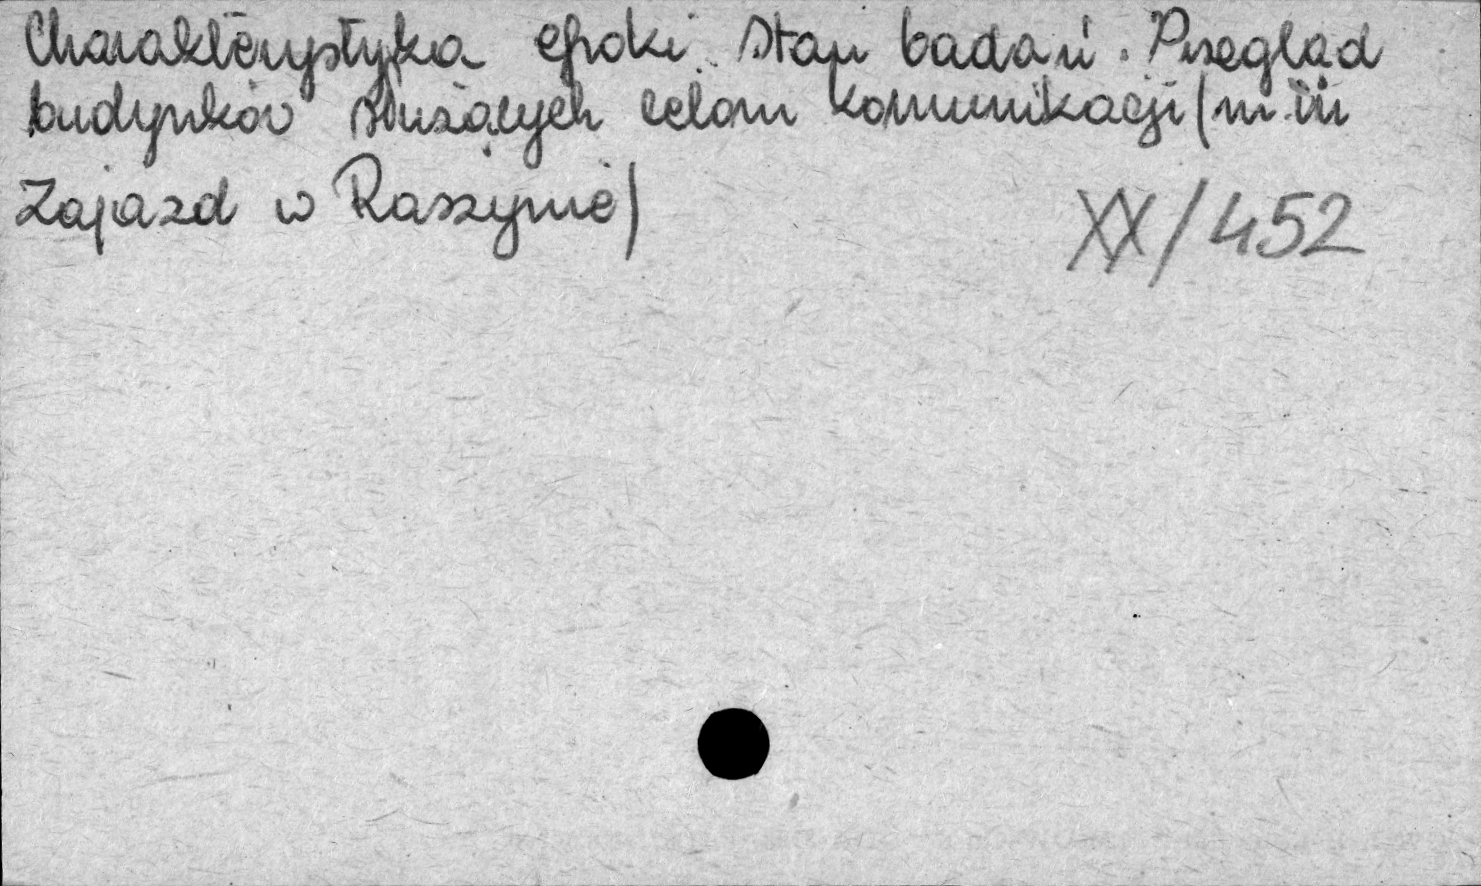 Charakterystyka epoki. Stan badań. Przegląd
budynków służących celom komunikacji (m.in
Zajazd w Raszynie)
XX/452